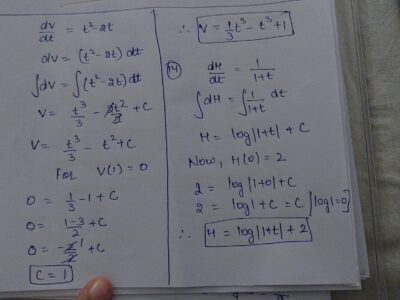 dV/dt = t² - 2t
dV = (t² - 2t) dt
∫dV = ∫(t² - 2t) dt
V = t³/3 - 2t²/2 + C
V = t³/3 - t² + C
For V(1) = 0
0 = 1/3 - 1 + C
0 = 1-3/2 + C
0 = -2/2 1 + C
C = 1
∴ V = 1/3 t³ - t³ + 1
14
dH/dt = 1/1+t
∫dH = ∫1/1+t dt
H = log|1+t| + C
Now, H(0) = 2
2 = log|1+0| + C
2 = log1 + C = C [log1=0]
∴ H = log|1+t| + 2